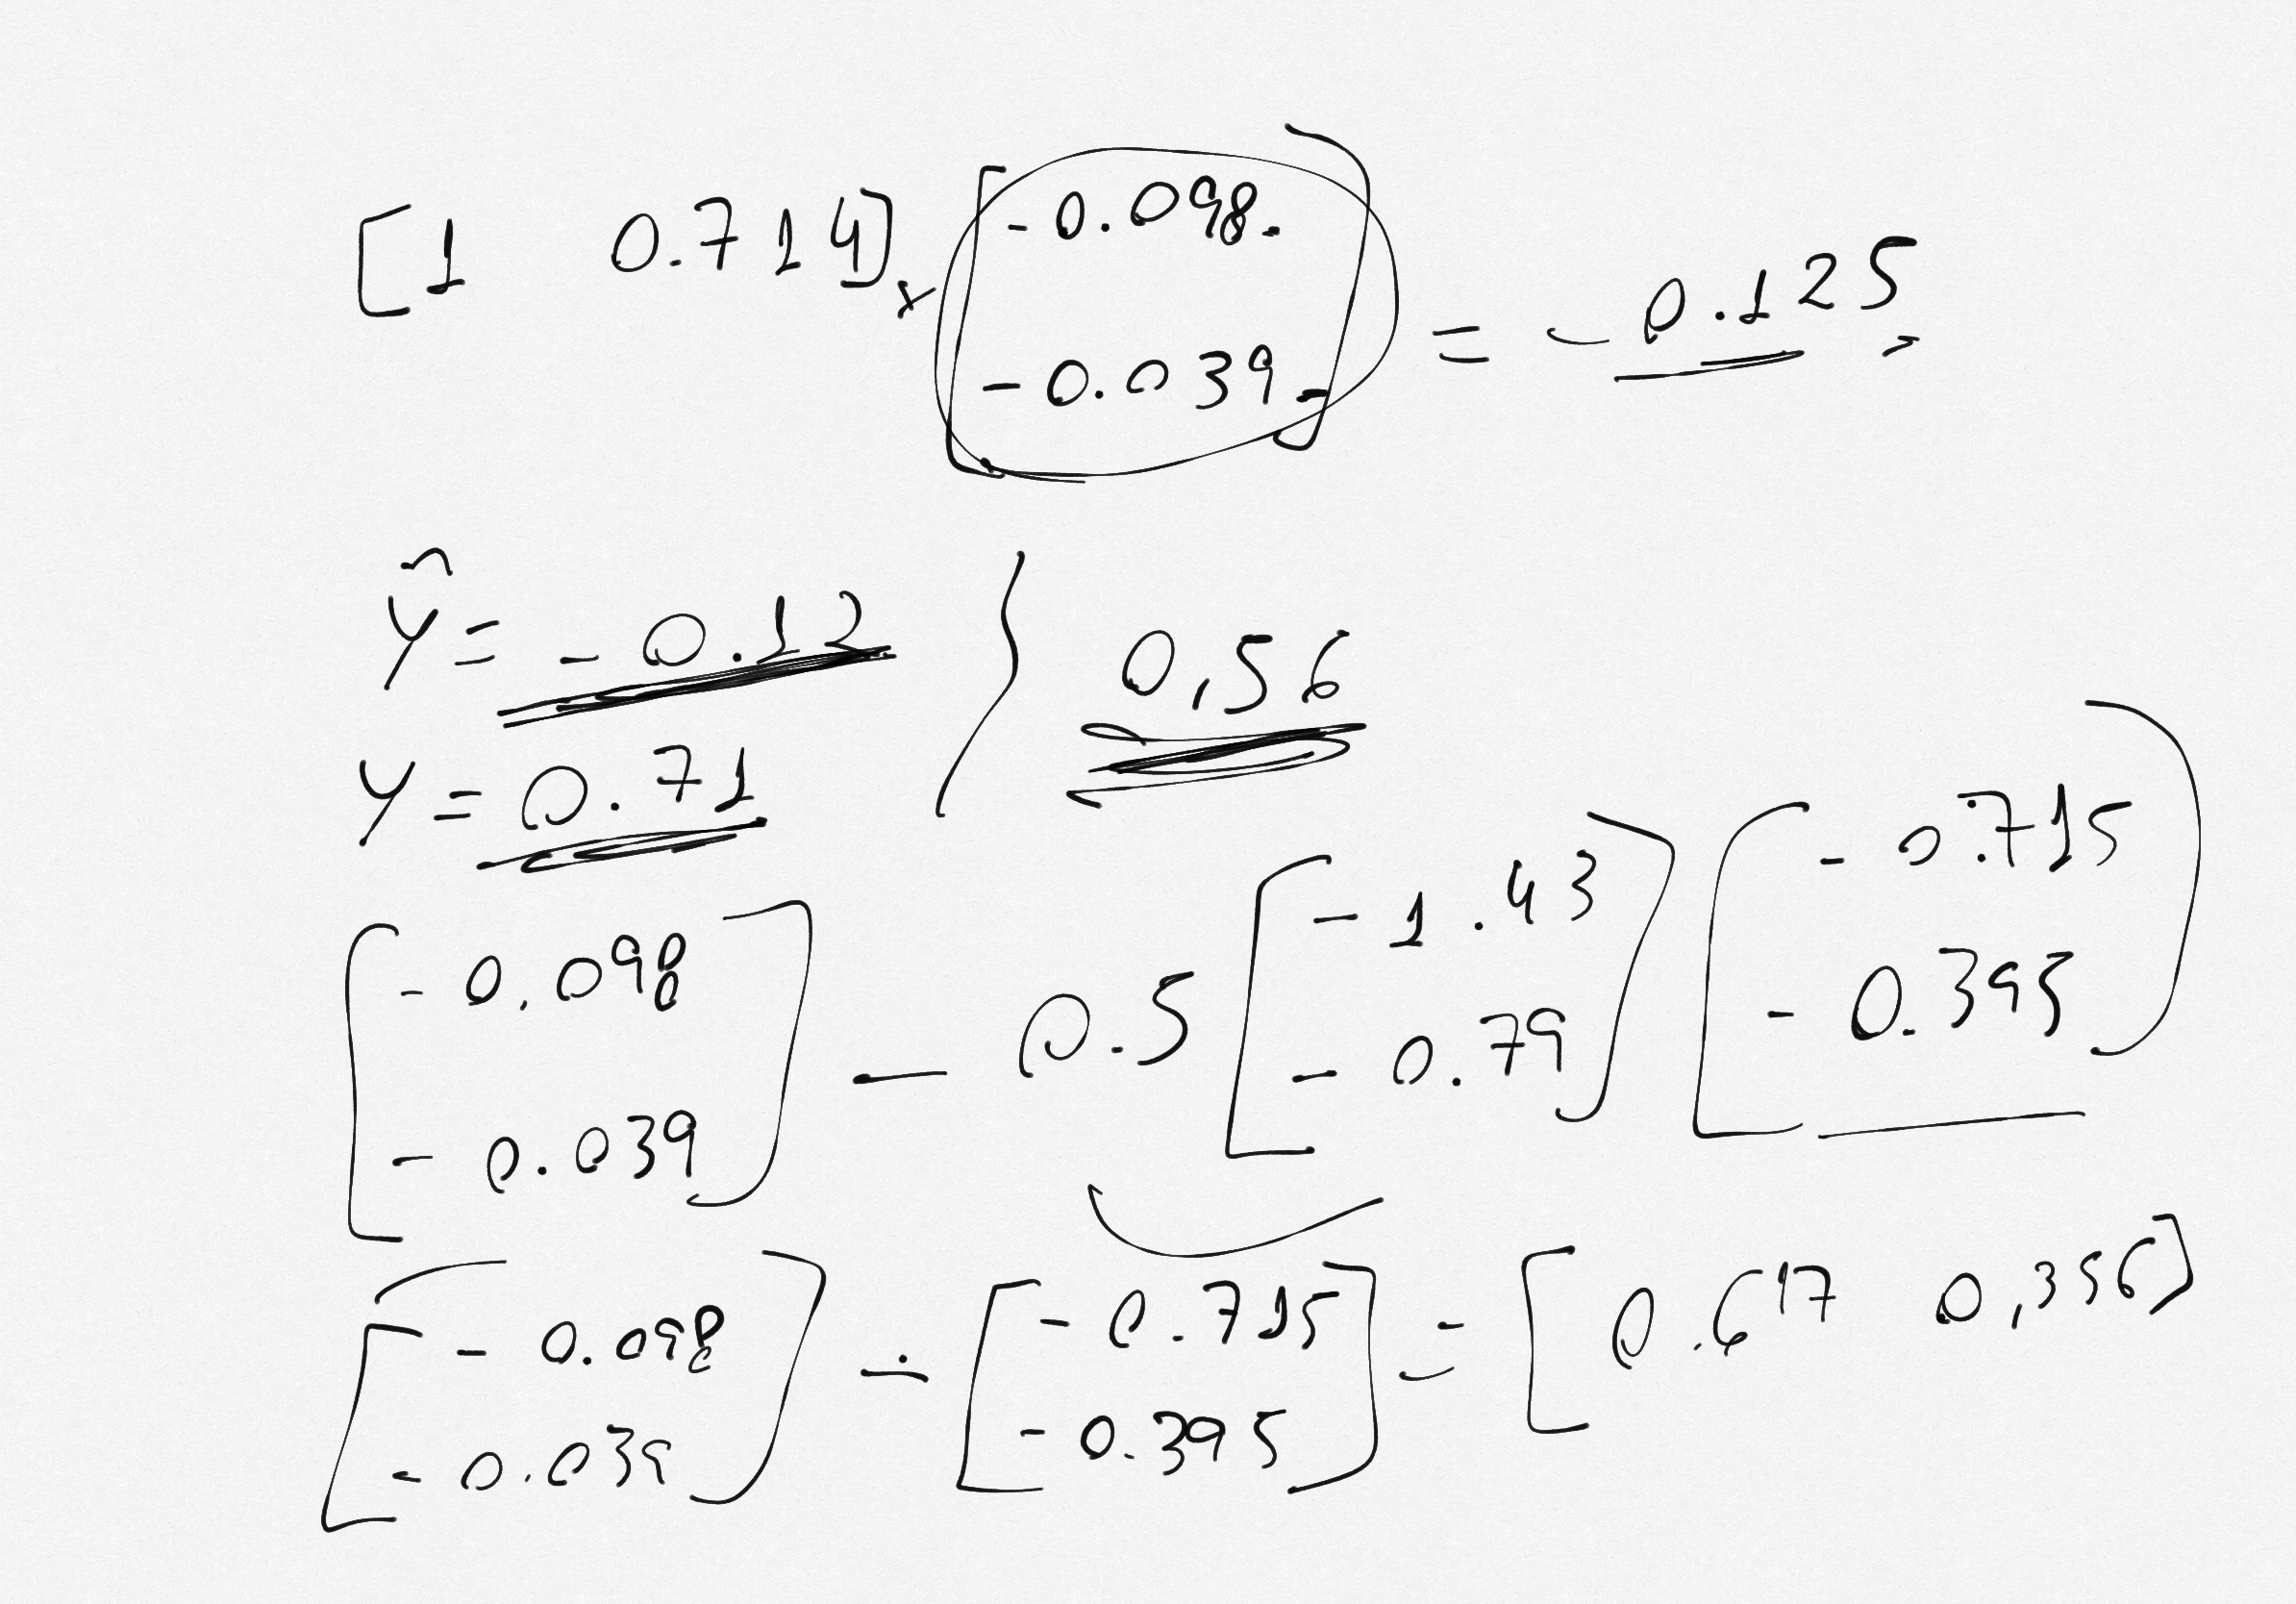 [1 0.714] x [-0.098. -0.039.] = -0.125
ŷ = -0.12
0,56
y = 0.71
[-0.098 -0.039] - 0.5 [-1.43 -0.79] [-0.715 -0.395]
[-0.098 -0.039] - [-0.715 -0.395] = [0.617 0,356]